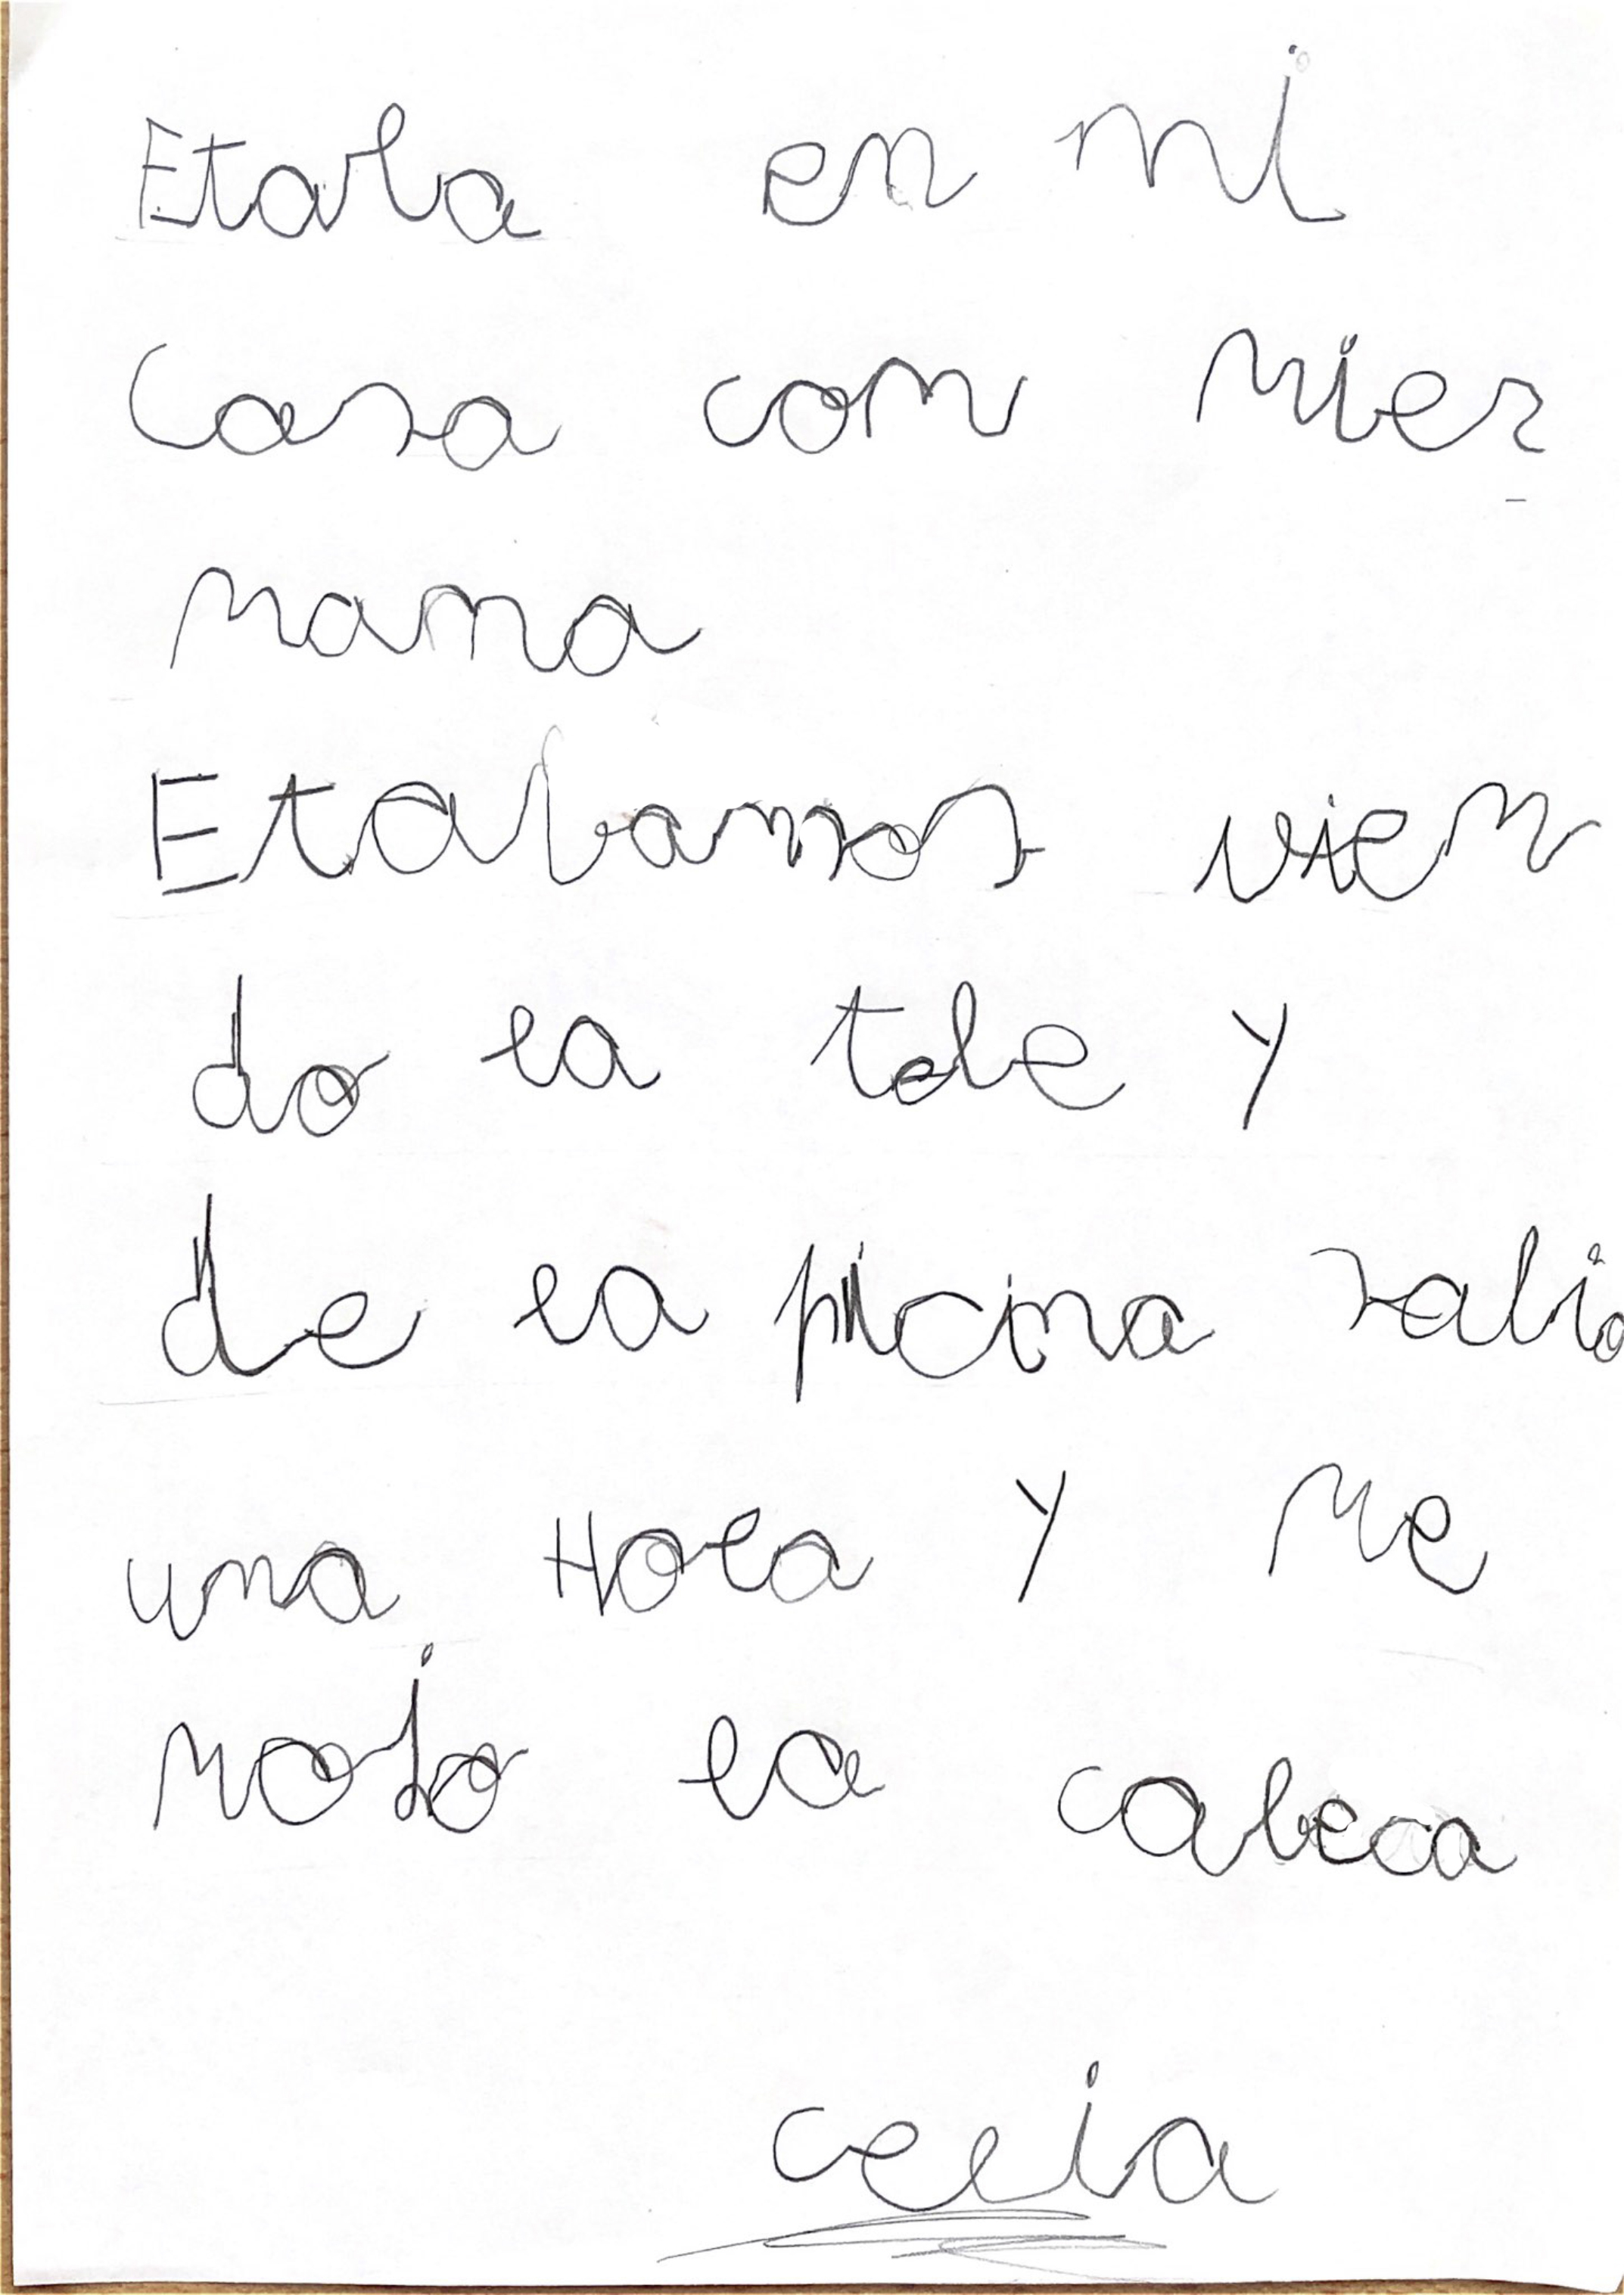 Etaba en mi
Casa con Mier
mama
Etabamos vien
do la tele Y
de la picina salio
una Hola Y Me
Mojo la cabeca
celia